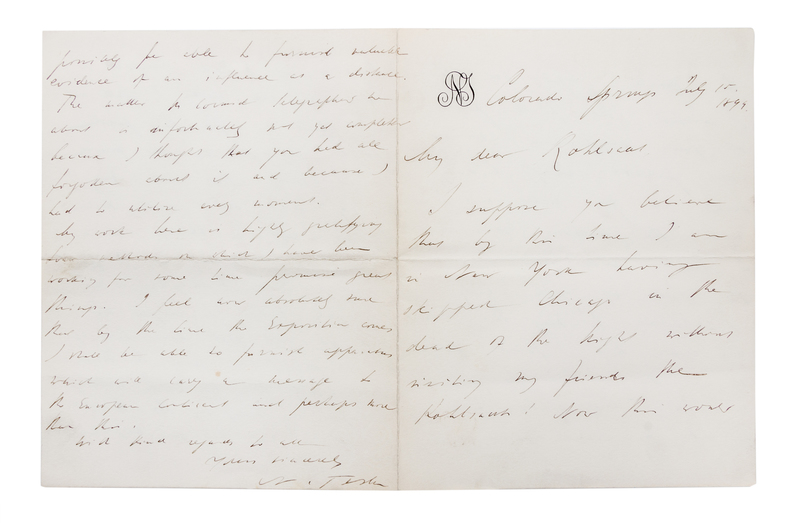 Colorado Springs July 10.
1899
My dear Kohlsaat
I suppose you believe
that by this time I am
in New York having
skipped Chicago in the
dead of the night without
visiting my friends the
Kohlsaats! Now this would
possibly be able to furnish valuable
evidence of an influence at a distance.
The matter for
about is unfortunately not yet completed
because I thought that you had all
forgotten about it and because I
had to utilize every moment.
My work here is highly gratifying
methods on which I have been
working for some time promise great
things. I feel now absolutely sure
that by the time the Exposition comes
I shall be able to furnish apparatus
which will carry a message to
the European continent and perhaps more
than this.
With kind regards to all
Yours sincerely
N. Tesla